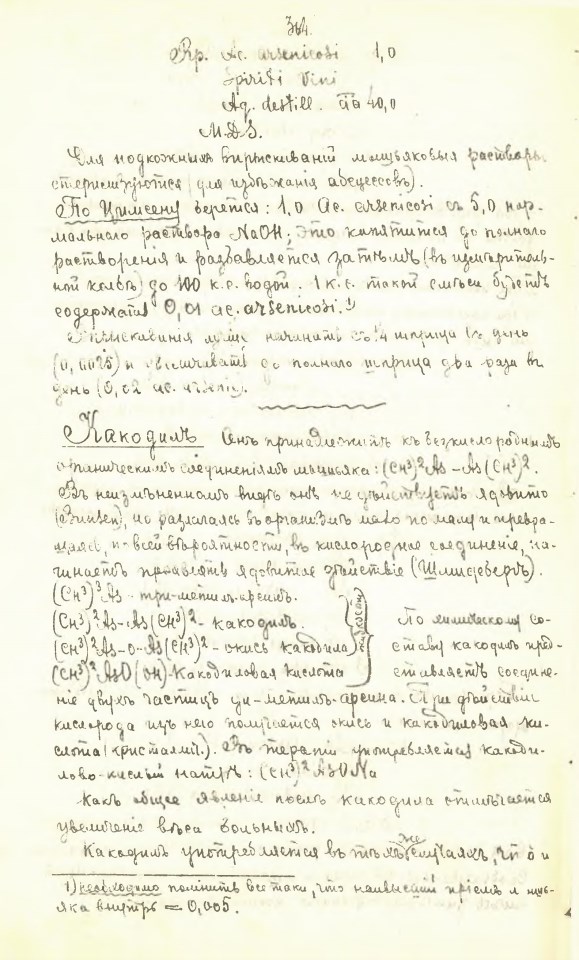 364.
Rp. Ac. arsenicosi 1,0
Spiriti Vini
Aq. destill. āā 40,0
M.D.S.
Для подкожныхъ впрыскиваній мышьяковыя растворы
стерилизуются (для избѣжанія абсцессовъ).
По Цимсену берется: 1,0 Ac. arsenicosi съ 5,0 нор-
мальнаго раствора NaOH; это кипятится до полнаго
растворенія и разбавляется затѣмъ (въ измѣритель-
ной колбѣ) до 100 к.с. водой. 1 к.с. такой смѣси будетъ
содержать 0,01 ac. arsenicosi.¹)
Впрыскиванія лучше начинать съ ¼ шприца въ день
(0,0025) и увеличивать до полнаго шприца два раза въ
день (0,02 ac. arsenic.).
Какодилъ Онъ принадлежитъ къ безкислороднымъ
органическимъ соединеніямъ мышьяка: (CH³)²As-As(CH³)².
Въ неизмѣненномъ видѣ онъ не дѣйствуетъ ядовито
(Bunsen), но разлагаясь въ организмѣ мало по малу и превра-
щаясь, по всей вѣроятности, въ кислородное соединеніе, на-
чинаетъ проявлять ядовитое дѣйствіе (Шмидебергъ).
(CH³)³As - три-метилъ-арсинъ.
(CH³)²As-As(CH³)² - какодилъ.
(CH³)²As-O-As(CH³)² - окись какодила
(CH³)²AsO(OH) - Какодиловая кислота
По химическому со-
ставу какодилъ пред-
ставляетъ соедине-
ніе двухъ частицъ ди-метилъ-арсина. При дѣйствіи
кислорода изъ него получается окись и какодиловая ки-
слота (кристалич.). Въ терапіи употребляется какоди-
лово-кислый натръ: (CH³)²AsONa
Какъ общее явленіе послѣ какодила отмѣчается
увеличеніе вѣса больныхъ.
Какодилъ употребляется въ тѣхъ же случаяхъ, что и
1) Необходимо помнить все таки, что наивысшій пріемъ мышь-
яка внутрь = 0,005.